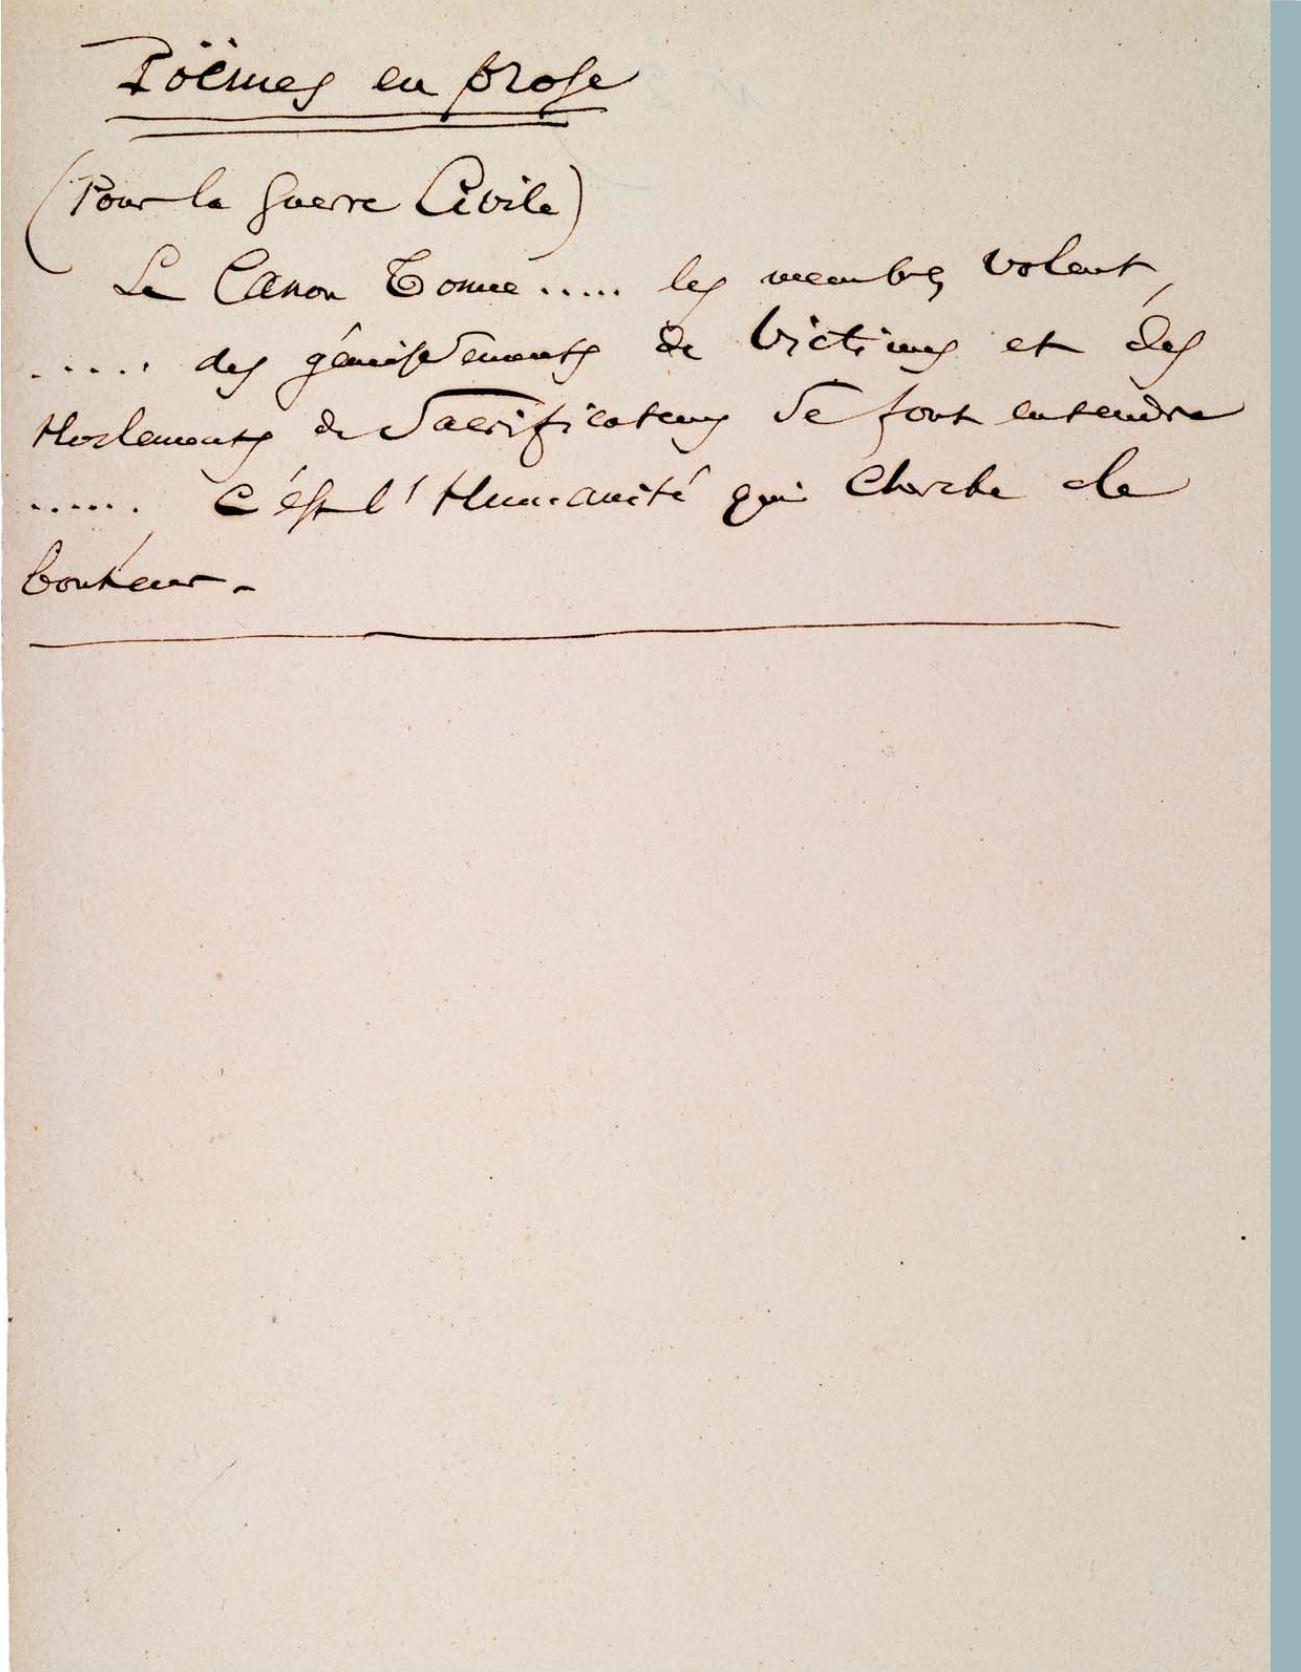 Poëmes en prose
(Pour la guerre Civile)
Le Canon Tonne..... les membres volent,
..... des gémissements de Victimes et des
Hurlements de Sacrificateurs Se font entendre
...... C'est l'Humanité qui Cherche le
bonheur.